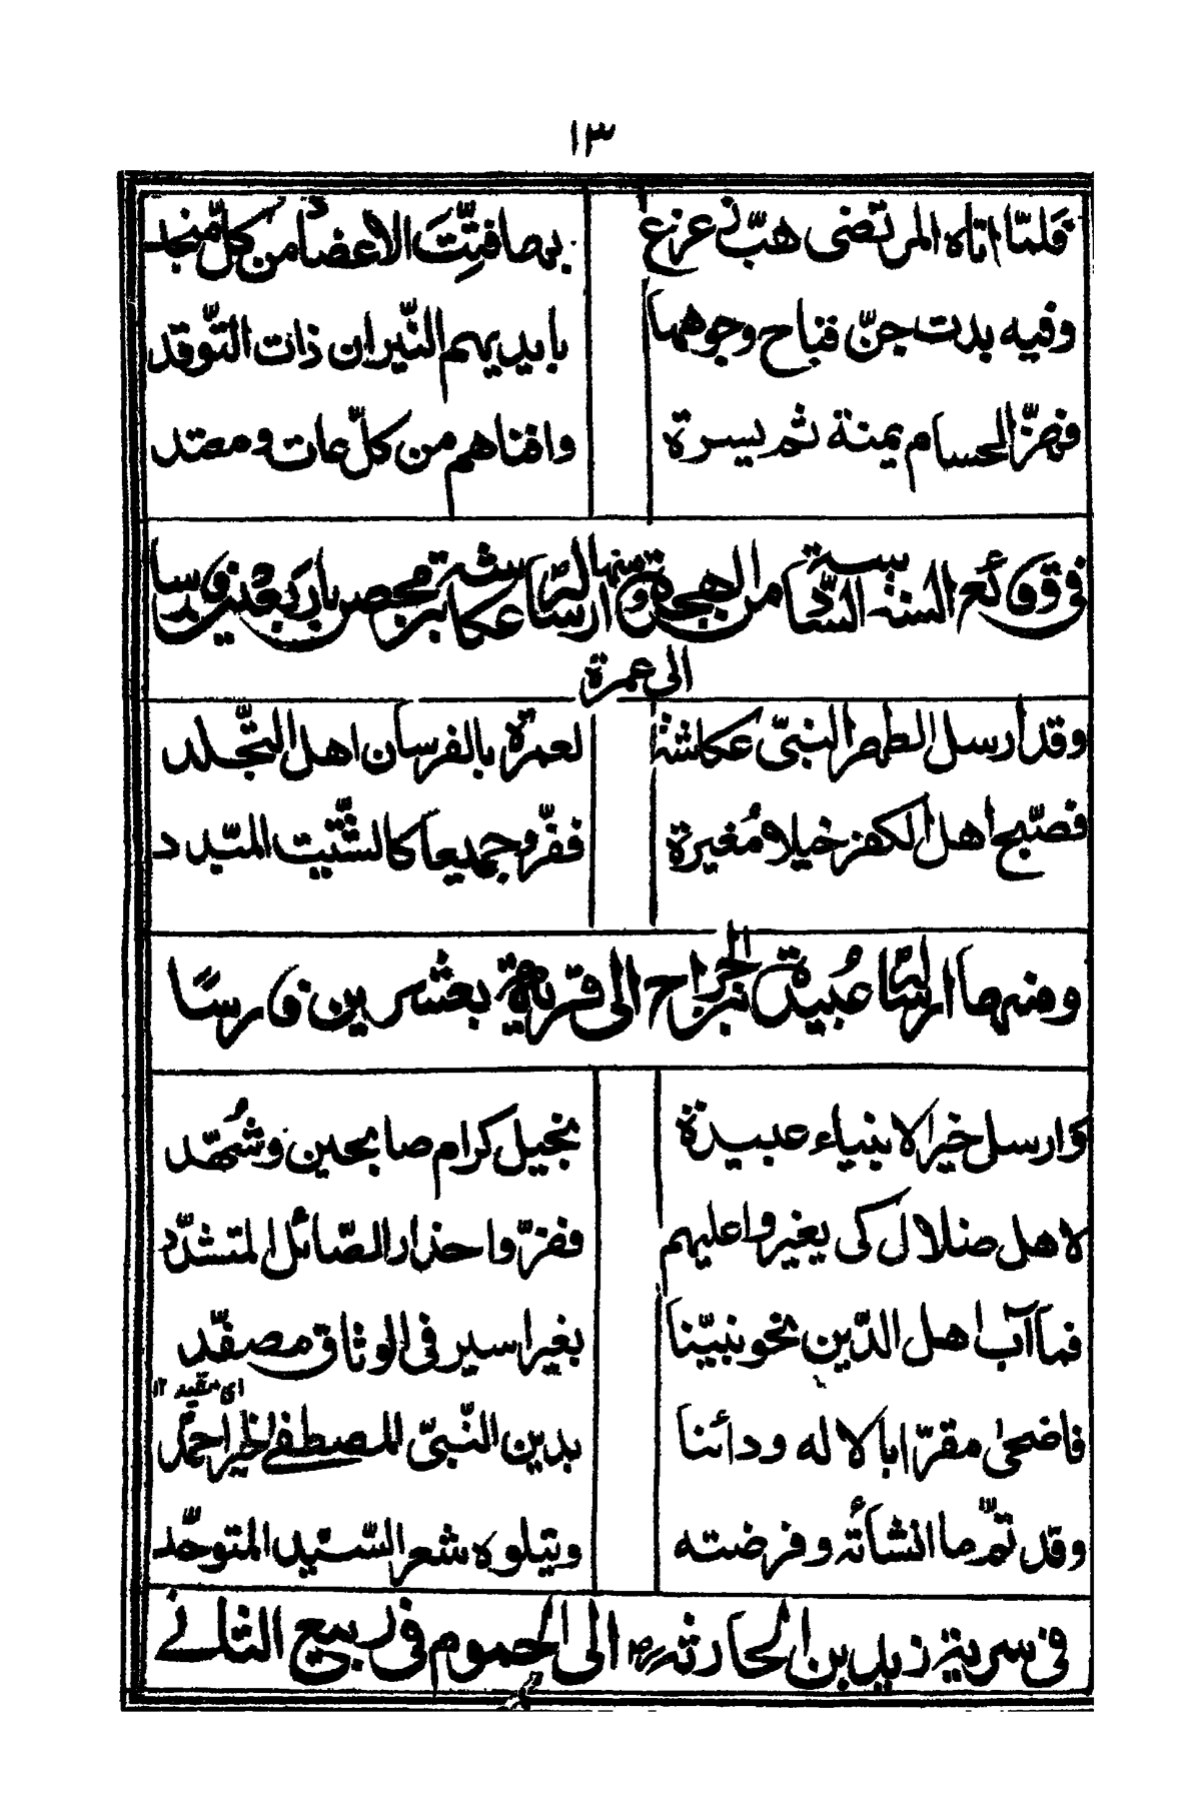 ١٣
فلمّا اتاه المرتضى هبّ زعزع
بها فتّت الاعضاء من كلّ منجد
وفيه بدت جنّ قباح وجوهها
بايديهم النّيران ذات التّوقد
فهزّ الحسام يمنة ثم يسرة
وافناهم من كلّ عات ومعتد
فى وقائع السنة السّادسة من الهجرة ومنها ارساله عكاشة بن محصن باربعين فارسا
الى عمرة
وقد أرسل الطهر النبىّ عكاشة
لعمرة بالفرسان اهل التّجلد
فصبّح أهل الكفر خيلا مُغيرة
ففرّو جميعا كالشّتيت المبّدد
ومنها ارساله اباعُبيدة بن الجراح الى قرية بعشرين فارسًا
وارسل خير الانبياء عبيدة
بخيل كرام صابحين وشُهّد
لاهل ضلال كى يغيروا عليهم
ففرّوا حذار الصّائل المتشدّد
فما آب اهل الدّين نحو نبيّنا
بغير اسير فى الوثاق مصفّد
اى مقيد ١٢
فاضحىٰ مقرّا بالاله ودائنا
بدين النّبىّ المصطفى الخير احمد
وقد تمّ ما انشأته وفرضته
ويتلوه شعر السّيّد المتوحّد
فى سرية زيد بن الحارثه رض الى الحموم فى ربيع الثانى